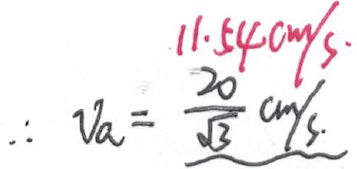 11.54 cm/s.
∴ Va = 20/√3 cm/s.